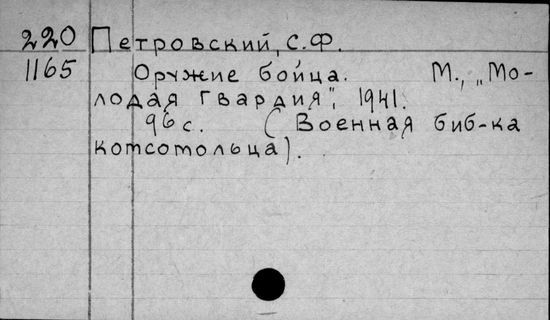 220 Петровский, С.Ф.
1165 Оружие бойца. М., „Мо-
лодая Гвардия", 1941.
96 с. (Военная биб-ка
комсомольца).